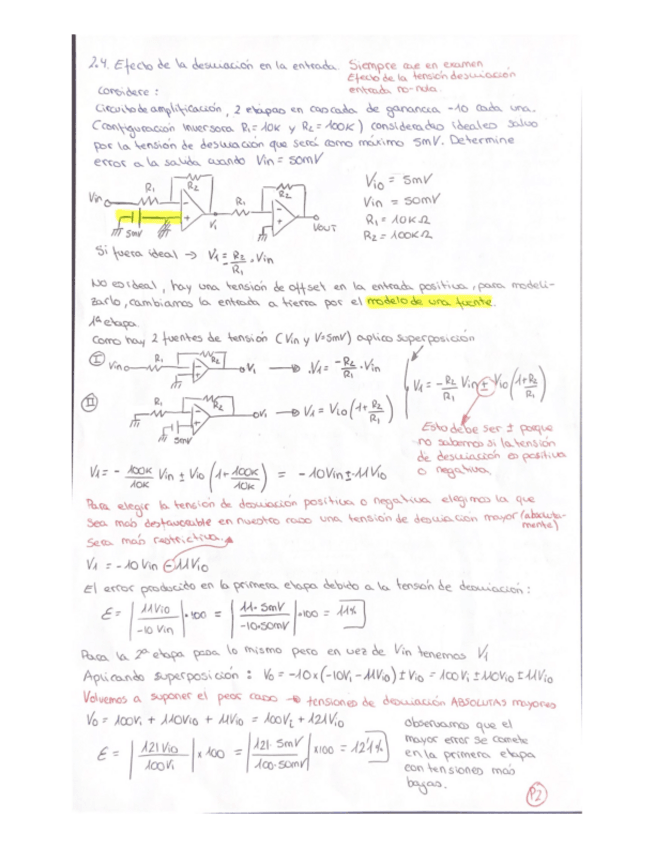 2.4. Efecto de la desviación en la entrada. Siempre cae en examen
Efecto de la tensión desviación
entrada no-nula.
Considere:
Circuito de amplificación, 2 etapas en cascada de ganancia -10 cada una.
(configuración inversora R1=10K y R2=100K) considerados ideales salvo
por la tensión de desviación que será como máximo 5mV. Determine
error a la salida cuando Vin = 50mV
Vin R1 R2 R1 R2
5mV V1 VOUT
Vio = 5mV
Vin = 50mV
R1 = 10KΩ
R2 = 100KΩ
Si fuera ideal → V1 = - R2/R1 · Vin
No es ideal, hay una tensión de offset en la entrada positiva, para modeli-
zarlo, cambiamos la entrada a tierra por el modelo de una fuente.
1ª etapa
Como hay 2 fuentes de tensión (Vin y V=5mV) aplico superposición
I Vin R1 R2 V1 → V1 = -R2/R1 · Vin
II R1 R2 5mV V1 → V1 = Vio (1+R2/R1)
V1 = -R2/R1 Vin ± Vio (1+R2/R1)
Esto debe ser ± porque
no sabemos si la tensión
de desviación es positiva
o negativa
V1 = - 100K/10K Vin ± Vio (1+100K/10K) = -10Vin ± 11Vio
Para elegir la tensión de desviación positiva o negativa elegimos la que
sea más desfavorable en nuestro caso una tensión de desviación mayor (absoluta-
mente)
será más restrictiva.
V1 = -10Vin - 11Vio
El error producido en la primera etapa debido a la tensión de desviación:
Ɛ = |11Vio/-10Vin| · 100 = |11·5mV/-10·50mV| · 100 = 11%
Para la 2ª etapa pasa lo mismo pero en vez de Vin tenemos V1
Aplicando superposición: Vo = -10×(-10Vi - 11Vio) ± Vio = 100Vi ± 110Vio ± 11Vio
Volvemos a suponer el peor caso → tensiones de desviación ABSOLUTAS mayores
Vo = 100Vi + 110Vio + 11Vio = 100Vi + 121Vio
Ɛ = |121Vio/100Vi| × 100 = |121·5mV/100·50mV| × 100 = 12'1%
observamos que el
mayor error se comete
en la primera etapa
con tensiones más
bajas.
P2